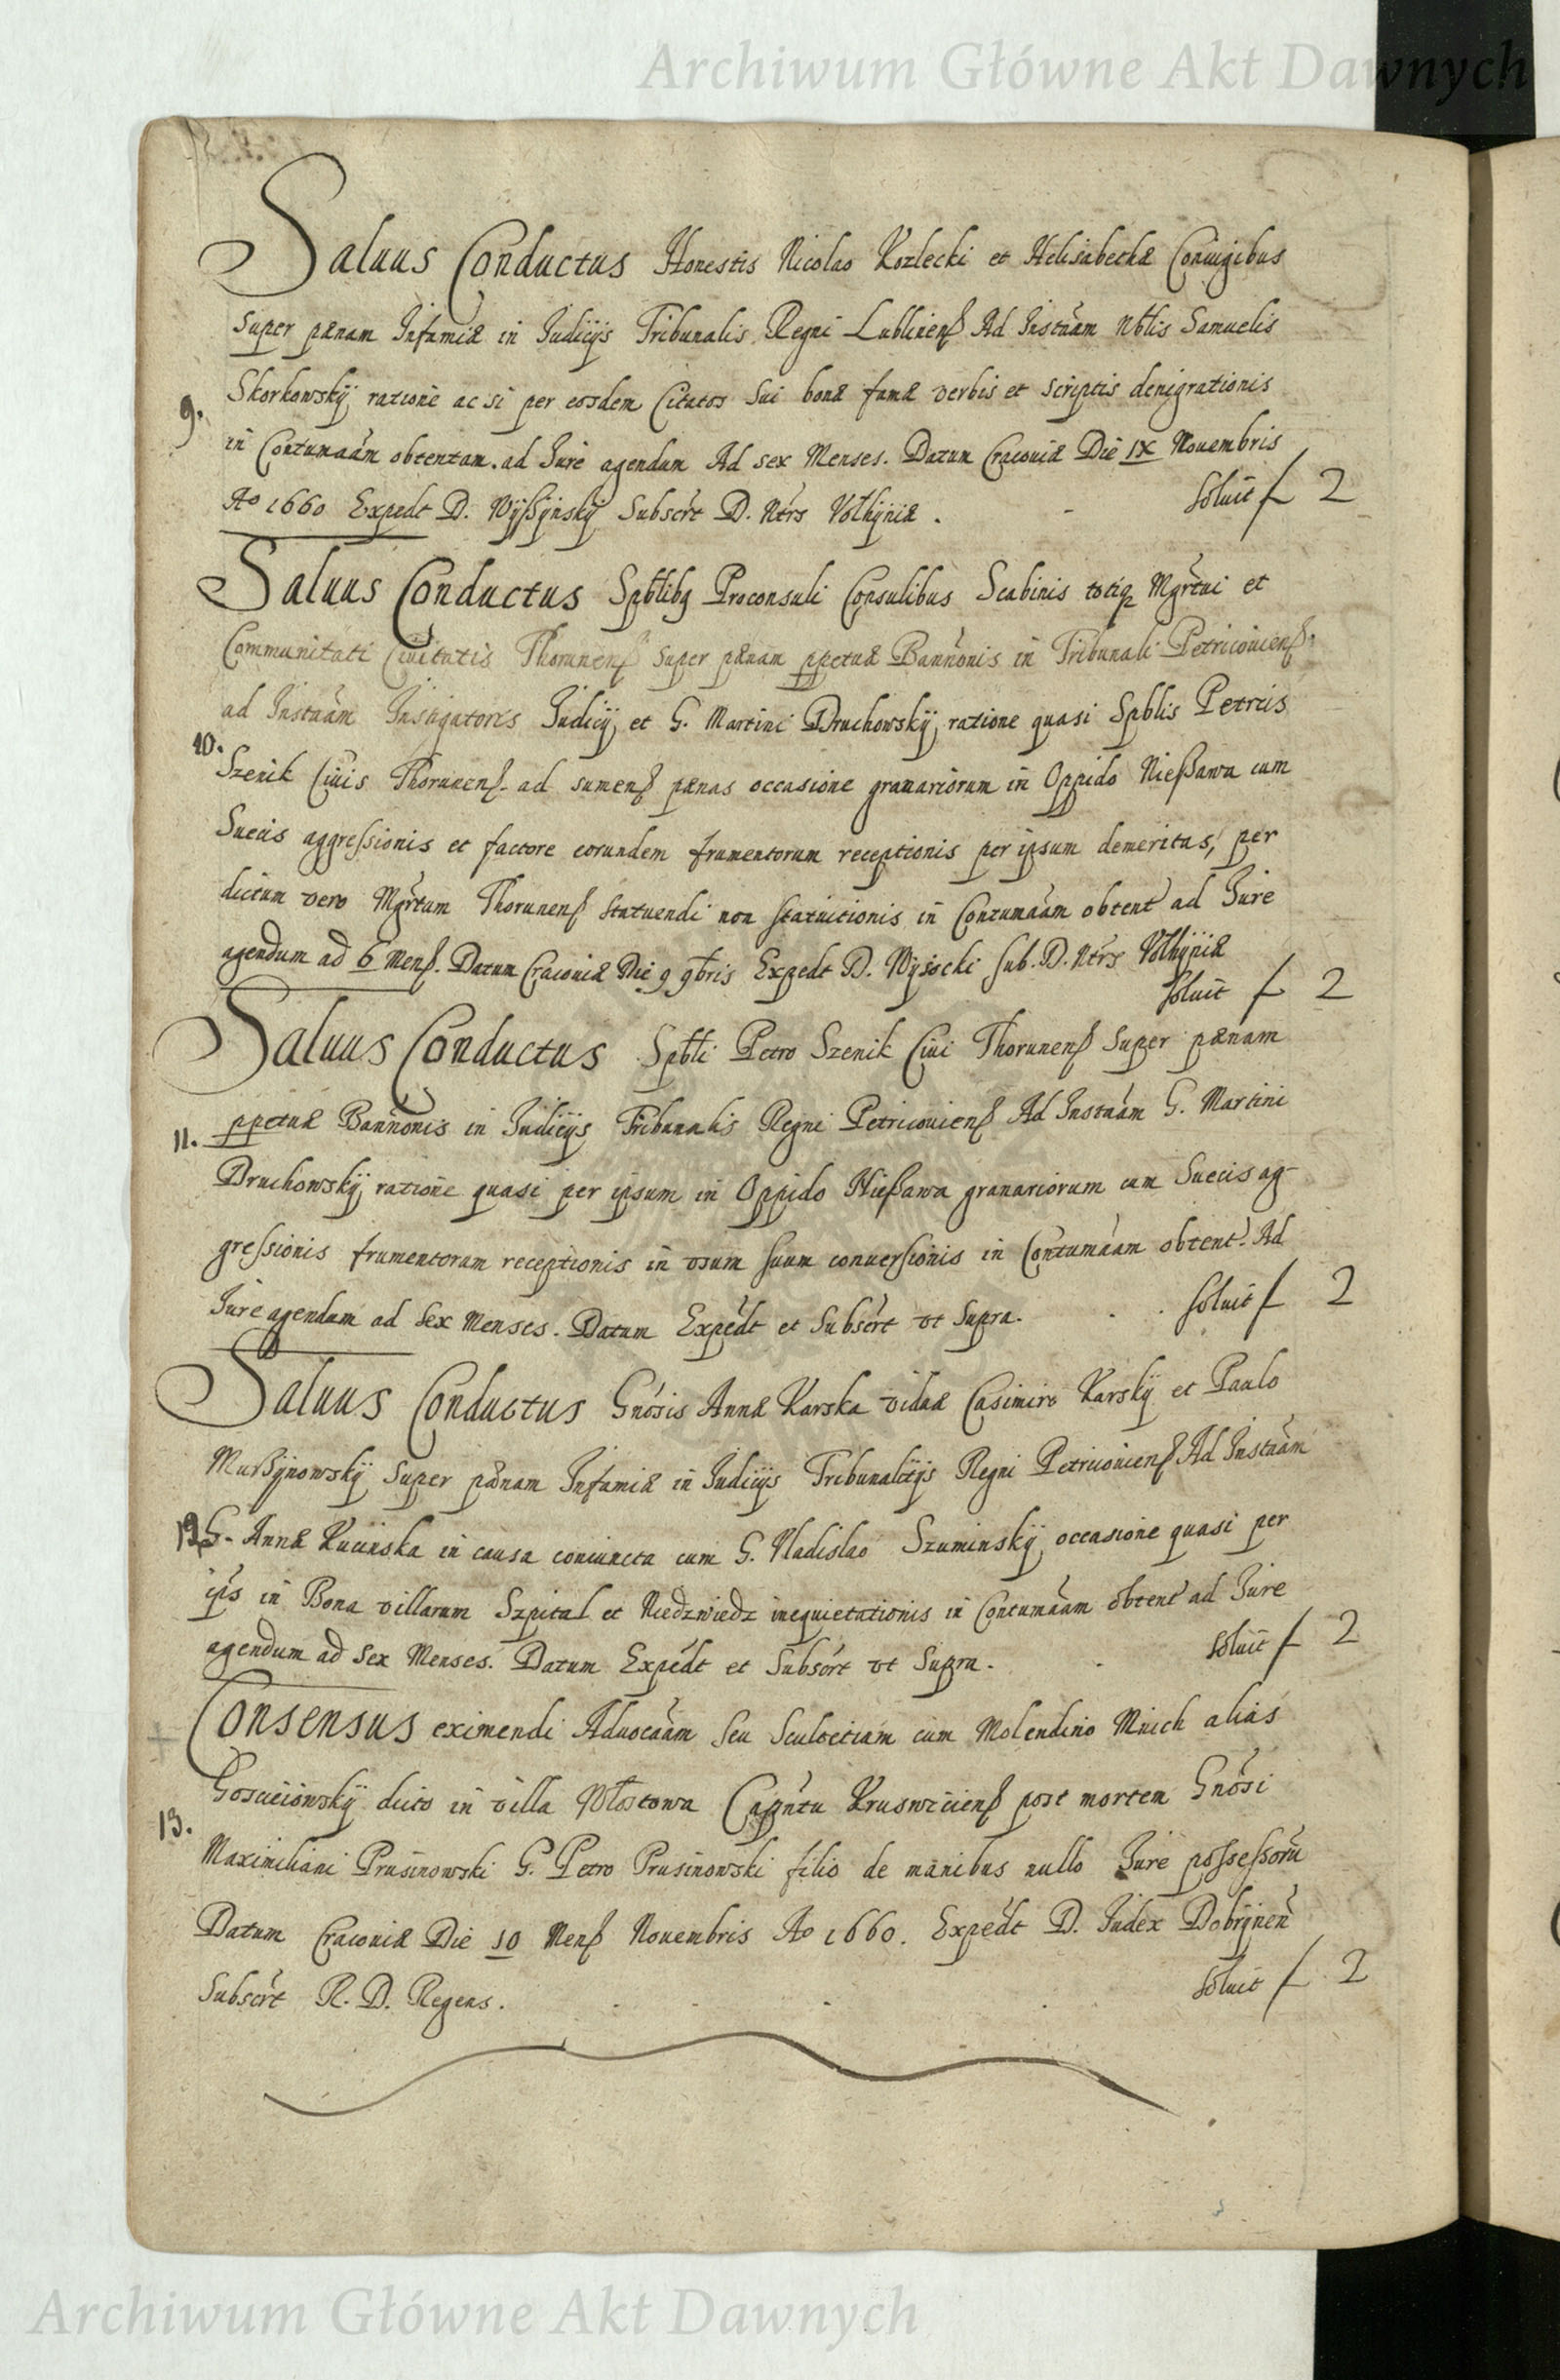 Archiwum Główne Akt Dawnych
Saluus Conductus Honestis Nicolao Kozlecki et Helisabethæ Coniugibus
Super pænam Infamiæ in Iudicijs Tribunalis Regni Lublinenß Ad Instãam Nblis Samuelis
Skorkowskÿ ratione ac si per eosdem Citatos Sui bonæ famæ verbis et scriptis denigrationis
9.
in Contumaãm obtentam. ad Iure agendum Ad sex Menses. Datum Cracouiæ Die IX Nouembris
Ao 1660 Expedt D. Wÿßÿnskÿ Subscrt D. Ntrs Volhÿniæ . - Soluit f 2
Saluus Conductus Spblibq Proconsuli Consulibus Scabinis totiq Mgrtui et
Communitati Ciuitatis Thorunenß super pænam ppetuæ Bannonis in Tribunali Petricouienß
ad Instãam Instigatoris Iudicÿ et G. Martini Druchowskÿ ratione quasi Spblis Petrus
10.
Szenik Ciuis Thorunenß ad sumenß pænas occasione granariorum in Oppido Nießawa cum
Suecis aggressionis et factore eorundem frumentorum receptionis per ipsum demeritas, per
dictum vero Mgrtum Thorunenß statuendi non statuitionis in Contumaãm obtent ad Iure
agendum ad 6 Menß. Datum Cracouiæ Die 9 9bris Expedt D. Wysocki Sub. D. Ntrs Volhÿniæ
Soluit f 2
Saluus Conductus Spbli Petro Szenik Ciui Thorunenß Super pænam
ppetuæ Bannonis in Iudicijs Tribunalis Regni Petricouienß Ad Instãam G. Martini
11.
Druchowskÿ ratione quasi per ipsum in Oppido Nießawa granariorum cum Suecis ag-
gressionis frumentorum receptionis in vsum suum conuersionis in Contumaãm obtent. Ad
Iure agendum ad Sex Menses. Datum Expedt et Subscrt vt Supra. Soluit f 2
Saluus Conductus Gnosis Annæ Karska vidæ Casimiro Karskÿ et Paulo
Mußÿnowskÿ Super pænam Infamiæ in Iudicijs Tribunalitijs Regni Petricouienß Ad Instãam
12.
G. Annæ Kucinska in causa coniuncta cum G. Vladislao Szuminskÿ occasione quasi per
ips in Bona villarum Szpital et Niedzwiedz inequietationis in Contumaãm obtent ad Iure
agendum ad Sex Menses. Datum Expedt et Subscrt vt Supra. - Soluit f 2
Consensus eximendi Aduocaãm seu Scultetiam cum Molendino Mnich alias
dicto in villa Włostowa Capntu Kruswicienß post mortem Gnosi
13.
Maximiliani Prusinowski G. Petro Prusinowski filio de manibus nullo Iure possessorũ
Datum Cracouiæ Die 10 Menß Nouembris Ao 1660. Expedt D. Iudex Dobrÿnen
Subscrt R. D. Regens. Soluit f 2
Archiwum Główne Akt Dawnych